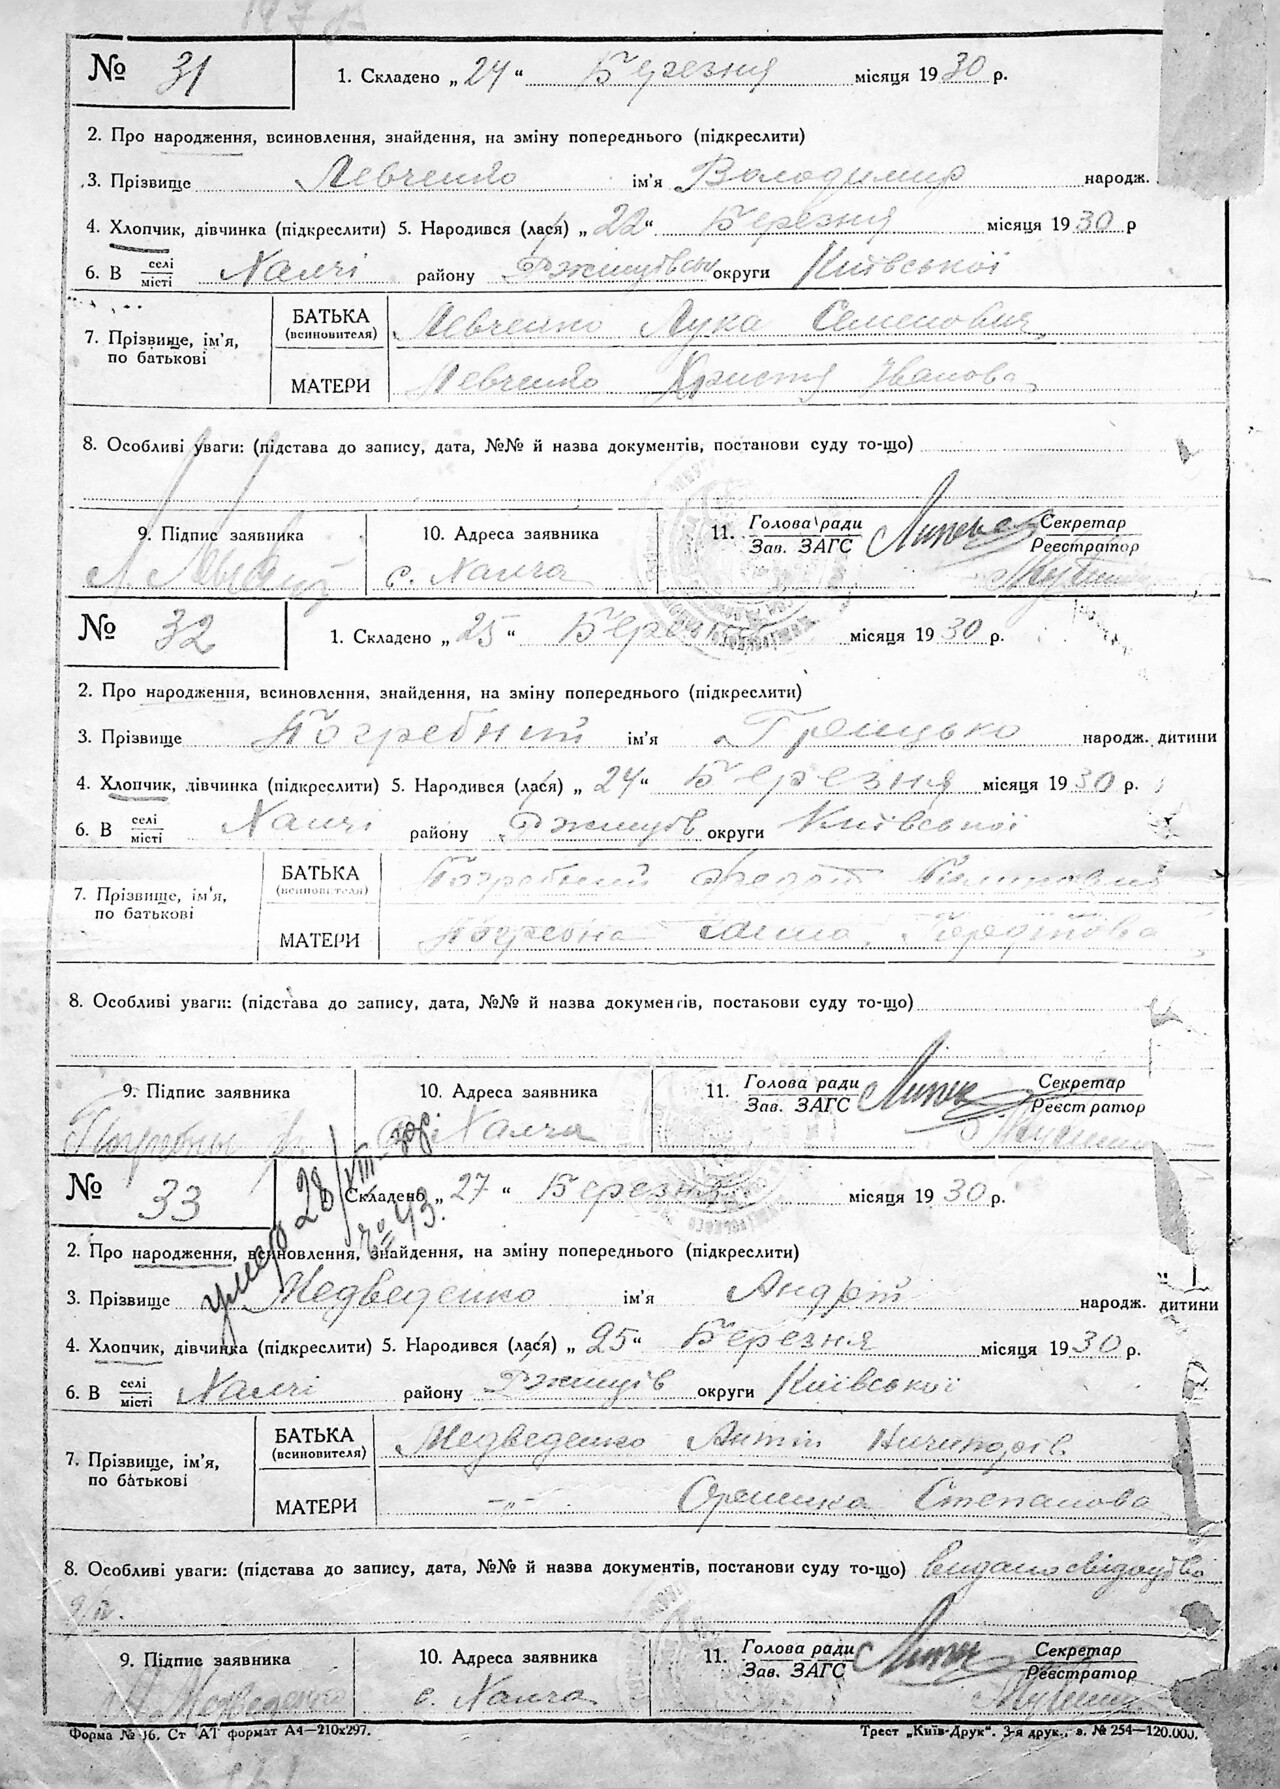 № 31 1. Складено „ 24 “ Березня місяця 1930 р.
2. Про народження, всиновлення, знайдення, на зміну попереднього (підкреслити)
3. Прізвище Левченко ім'я Володимир народж.
4. Хлопчик, дівчинка (підкреслити) 5. Народився (лася) „ 22 “ Березня місяця 1930 р
6. В селі місті Халчі району Ржищівськ округи Київської
7. Прізвище, ім'я, по батькові
БАТЬКА (всиновителя) Левченко Лука Семенович
МАТЕРИ Левченко Христя Іванова
8. Особливі уваги: (підстава до запису, дата, №№ й назва документів, постанови суду то-що)
9. Підпис заявника 10. Адреса заявника 11. Голова ради Зав. ЗАГС Секретар Реєстратор
с. Халча
№ 32 1. Складено „ 25 “ Березня місяця 1930 р.
2. Про народження, всиновлення, знайдення, на зміну попереднього (підкреслити)
3. Прізвище Погребний ім'я Грицько народж. дитини
4. Хлопчик, дівчинка (підкреслити) 5. Народився (лася) „ 24 “ Березня місяця 1930 р.
6. В селі місті Халчі району Ржищів округи Київської
7. Прізвище, ім'я, по батькові
БАТЬКА (всиновителя) Погребний
МАТЕРИ Погребна
8. Особливі уваги: (підстава до запису, дата, №№ й назва документів, постанови суду то-що)
9. Підпис заявника 10. Адреса заявника 11. Голова ради Зав. ЗАГС Секретар Реєстратор
Погребний Халча
№ 33 Складено „ 27 “ Березня місяця 1930 р.
умер 28/VIII-30р. № 43.
2. Про народження, всиновлення, знайдення, на зміну попереднього (підкреслити)
3. Прізвище Медведенко ім'я Андрій народж. дитини
4. Хлопчик, дівчинка (підкреслити) 5. Народився (лася) „ 25 “ Березня місяця 1930 р.
6. В селі місті Халчі району Ржищів округи Київської
7. Прізвище, ім'я, по батькові
БАТЬКА (всиновителя) Медведенко Антін Ничипорів
МАТЕРИ -„- Оришка Степанова
8. Особливі уваги: (підстава до запису, дата, №№ й назва документів, постанови суду то-що) видано свідоцтво
9. Підпис заявника 10. Адреса заявника 11. Голова ради Зав. ЗАГС Секретар Реєстратор
Медведенко с. Халча
Форма № 16. Ст АТ формат А4—210х297. Трест „Київ-Друк“. 3-я друк., з. № 254—120.000.